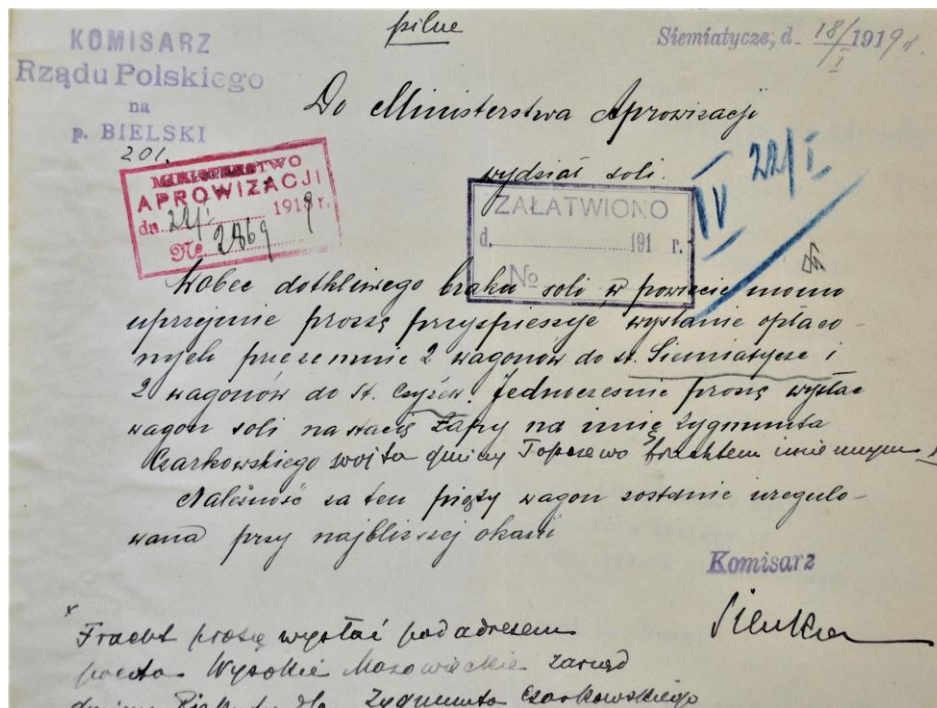 pilne
KOMISARZ
Rządu Polskiego
na
p. BIELSKI
201.
Siemiatycze, d. 18/I 1919 r.
Do Ministerstwa Aprowizacji
wydział soli.
MINISTERSTWO
APROWIZACJI
dn. 22/I 1919 r.
№ 2869
ZAŁATWIONO
d. 191 r.
№
IV 22/I
Wobec dotkliwego braku soli w powiecie
uprzejmie proszę przyspieszyć wysłanie opłaco-
nych przezemnie 2 wagonów do st. Siemiatycze i
2 wagonów do st. Czyżew. Jednocześnie proszę wysłać
wagon soli na stację Łapy na imię Zygmunta
Czarkowskiego wójta gminy Topczewo frachtem imiennym
Należność za ten piąty wagon zostanie uregulo-
wana przy najbliższej okazii
Komisarz
x
Fracht proszę wysłać pod adresem
poczta Wysokie Mazowieckie zarząd
gminy dla Zygmunta Czarkowskiego